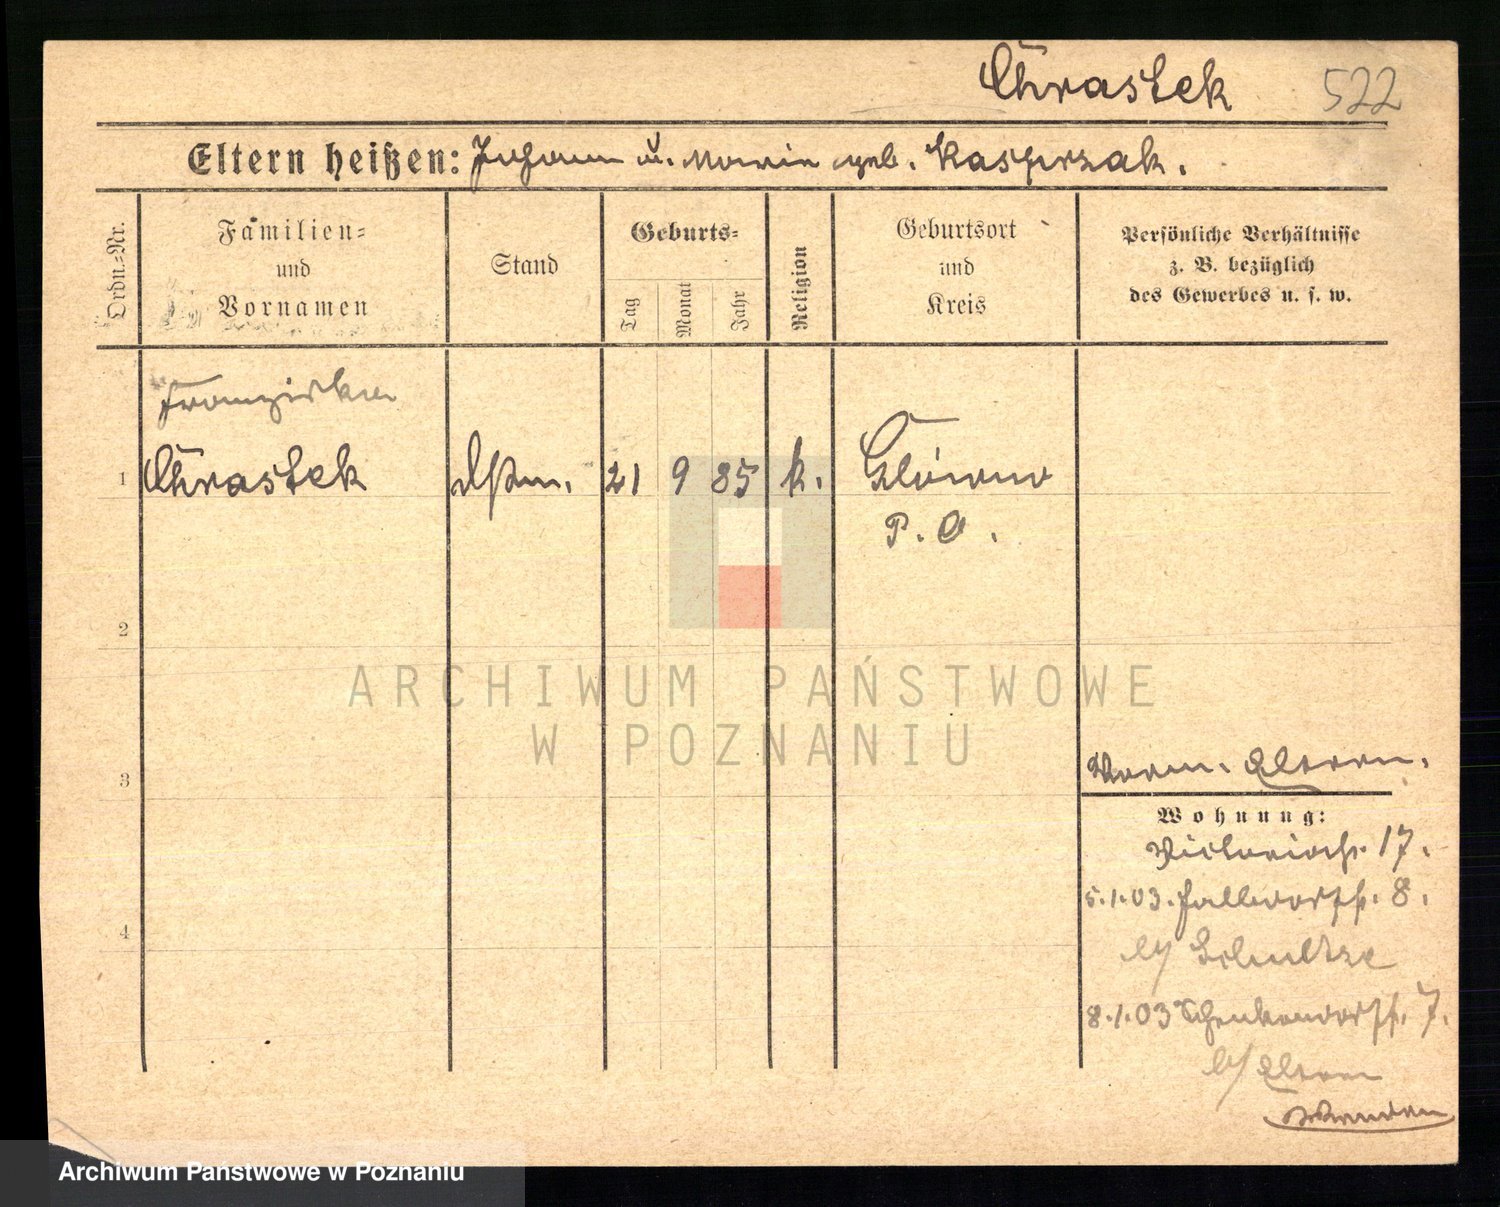 Chrastek 522
Eltern heißen: Johann u. Marie geb. Kasprzak.
Ordn.=Nr.
Familien=
und
Vornamen
Stand
Geburts=
Tag
Monat
Jahr
Religion
Geburtsort
und
Kreis
Persönliche Verhältnisse
z. B. bezüglich
des Gewerbes u. s. w.
Franziska
1 Chrastek 21 9 85 k. Główno
P. O.
2
3
4
Eltern.
Wohnung:
Victoriastr. 17.
5.1.03. Fallwortstr. 8.
b/ Schultze
8.1.03 Schenkendorfstr. 7.
b/ Eltern
ARCHIWUM PAŃSTWOWE
W POZNANIU
Archiwum Państwowe w Poznaniu